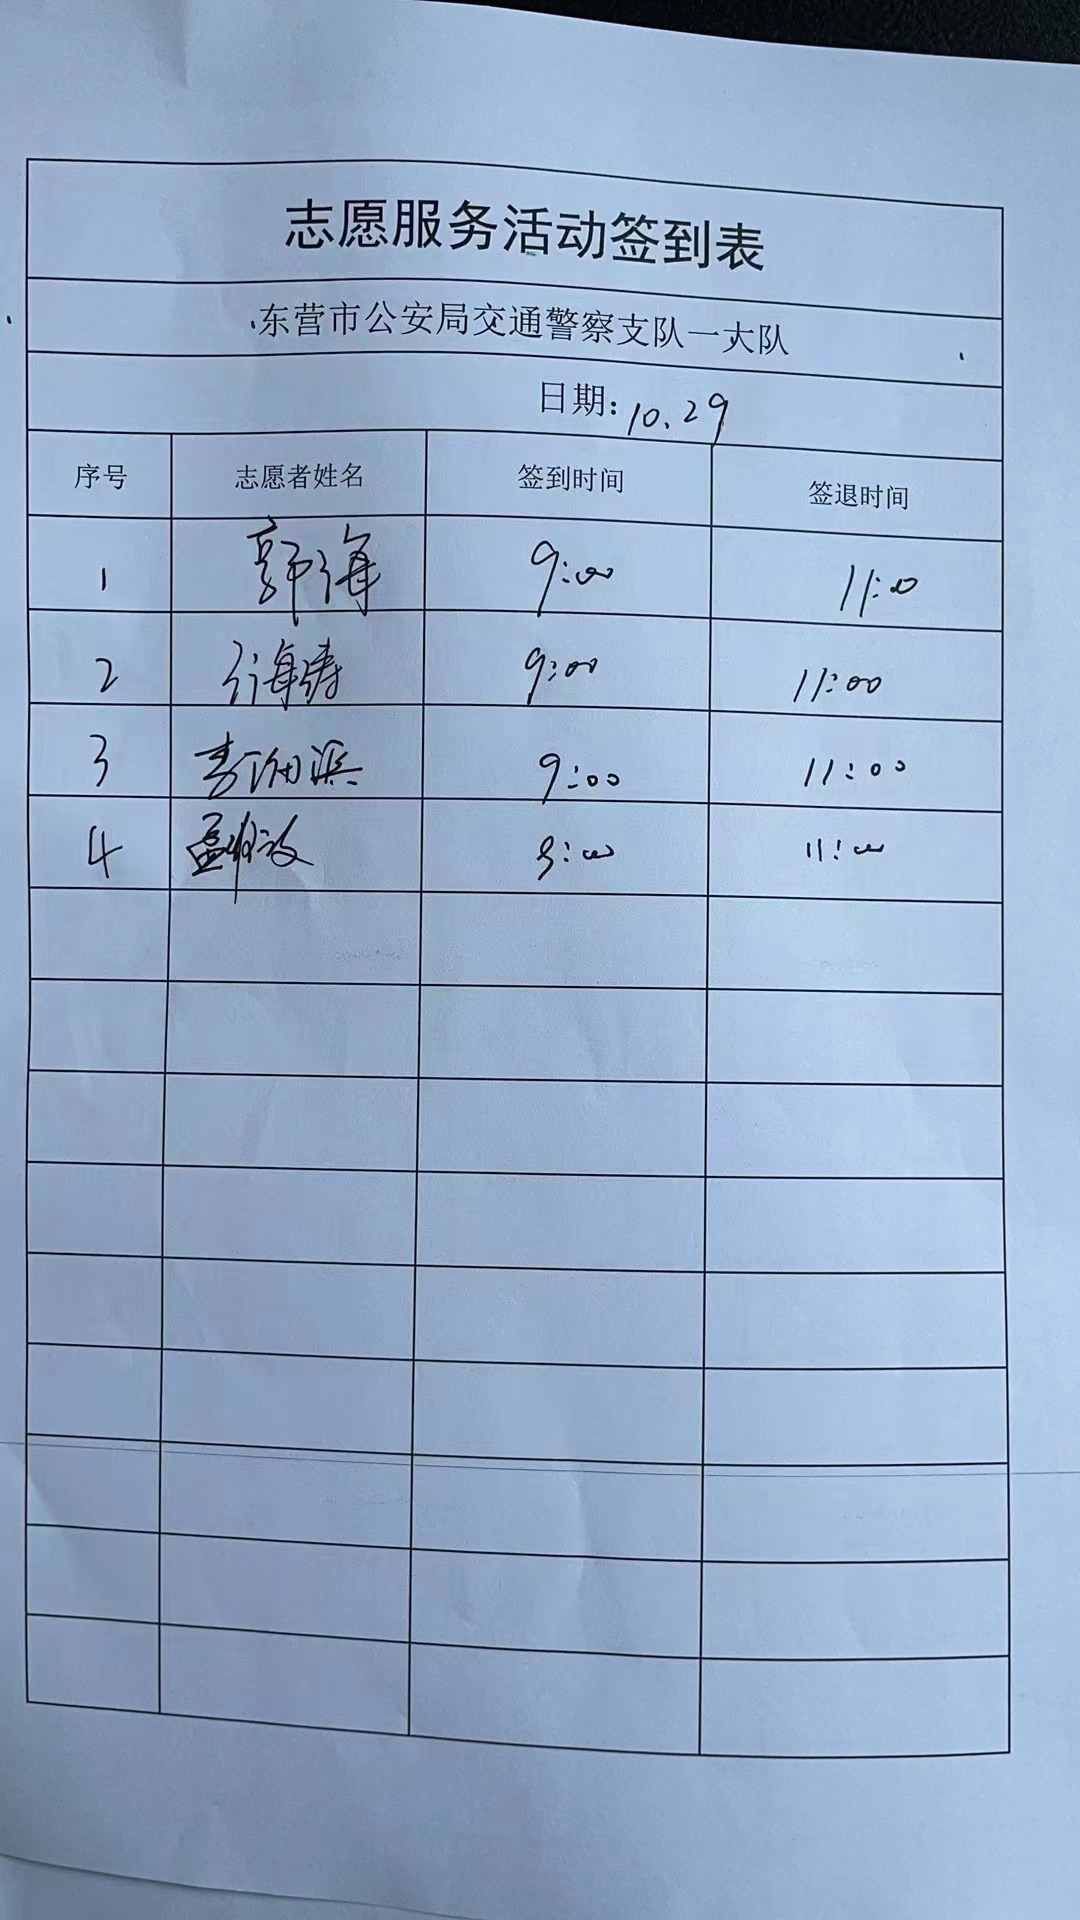 志愿服务活动签到表
东营市公安局交通警察支队一大队
日期：10.29
序号 志愿者姓名 签到时间 签退时间
1 郭海 9:00 11:00
2 海涛 9:00 11:00
3 9:00 11:00
4 9:00 11:00